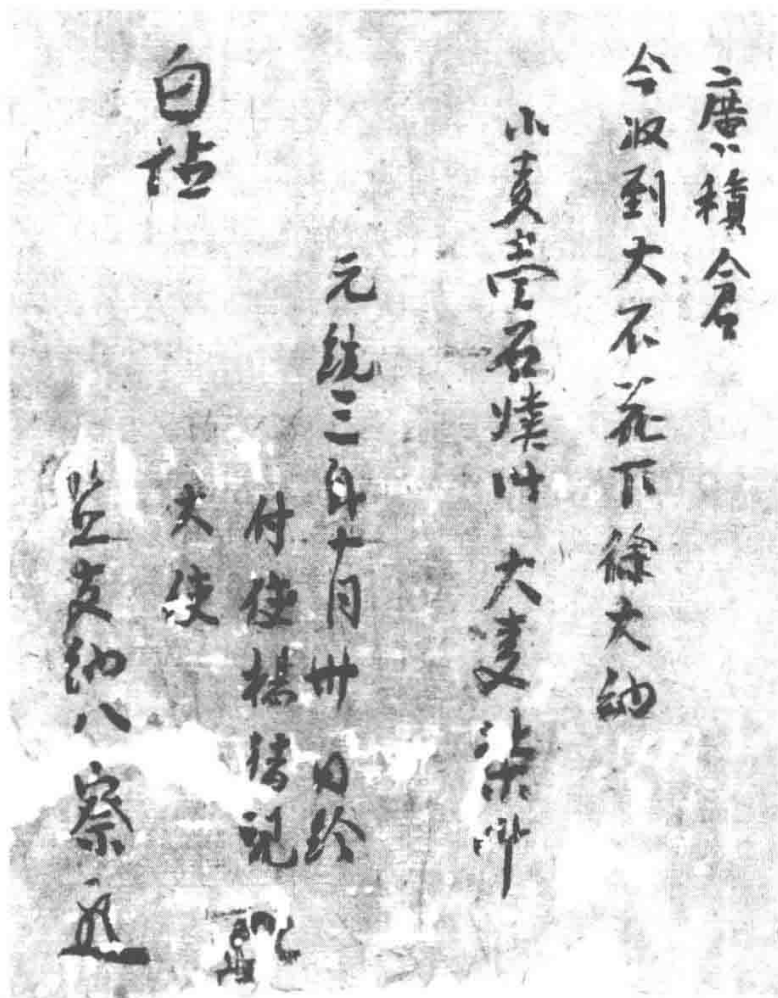 廣積倉
今收到大不花下徐大納
小麦壹石肆斗　大麦柒斗
元統三年十月卅日給
付使楊猪児
大使
监支納八察
白帖